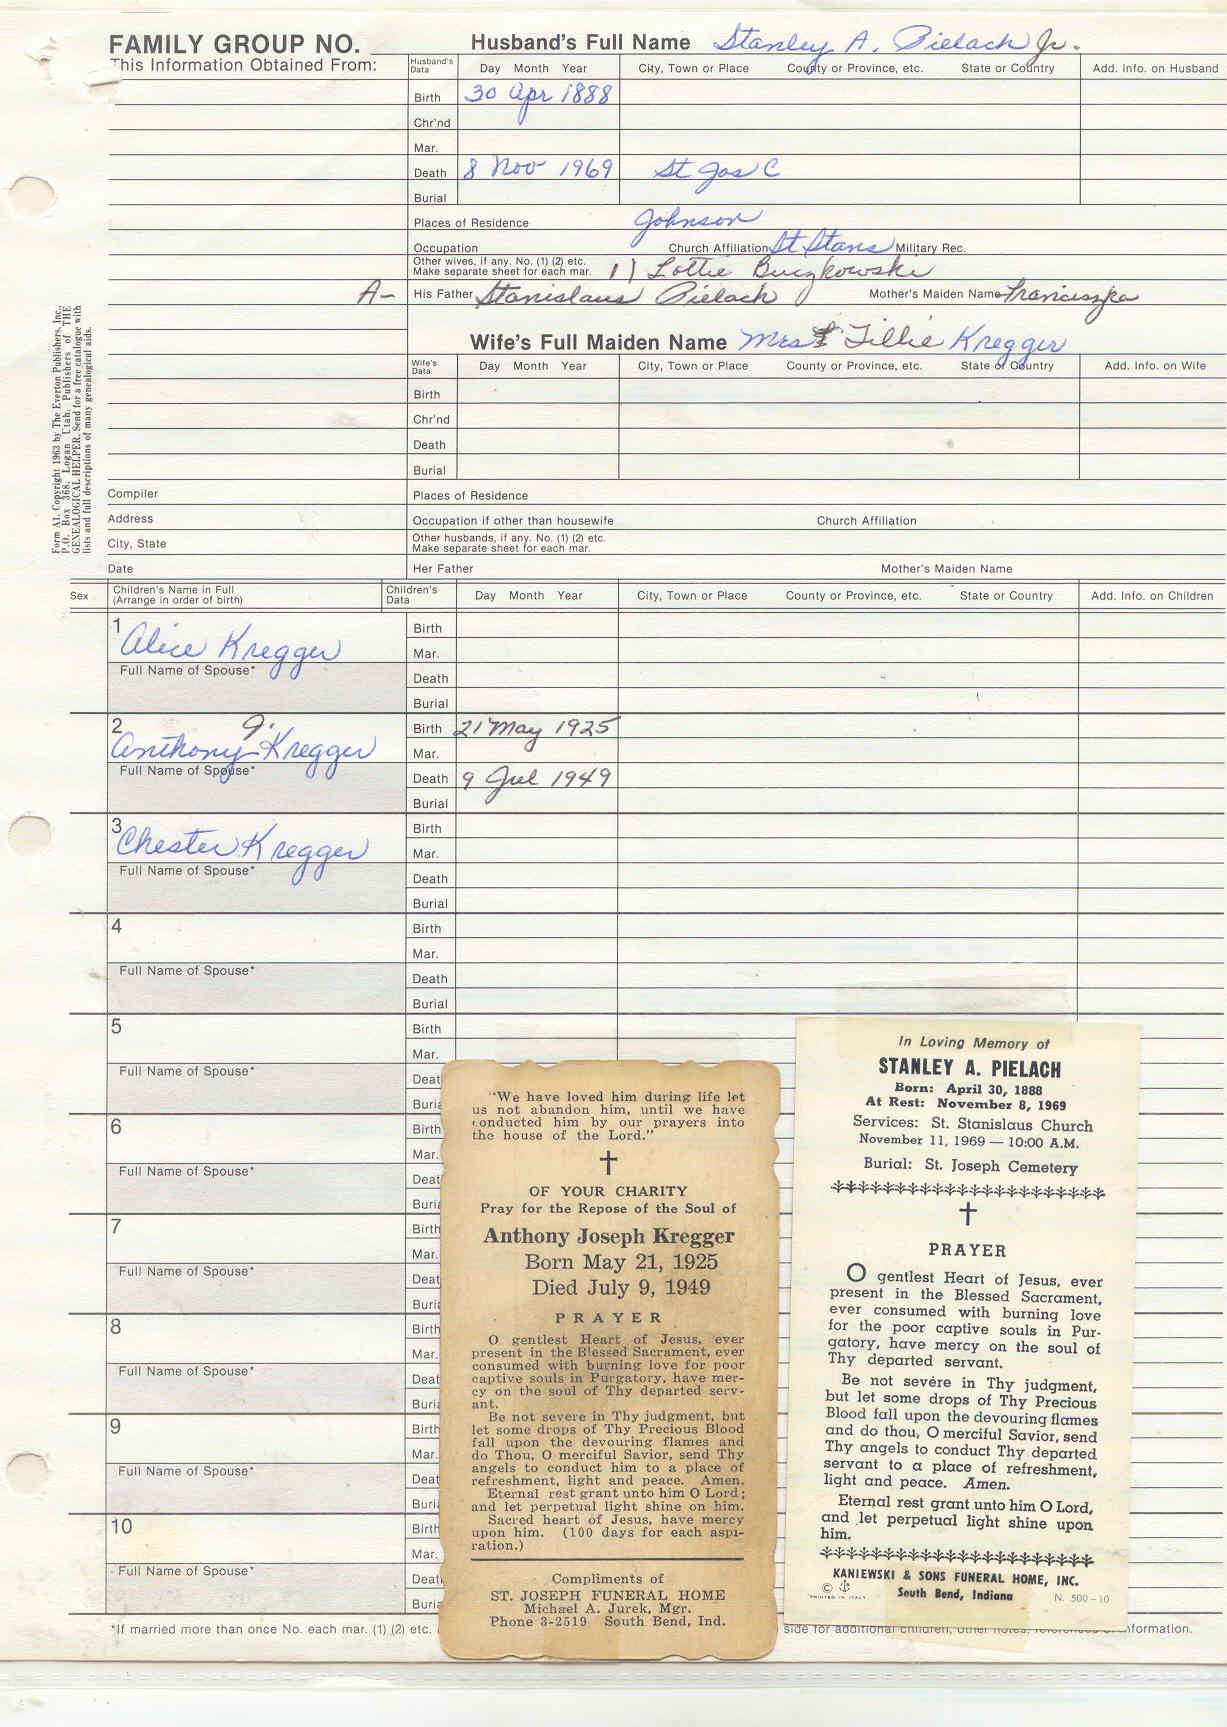 FAMILY GROUP NO.
Husband's Full Name Stanley A. Pielach Jr.
This Information Obtained From:
Husband's Data Day Month Year City, Town or Place County or Province, etc. State or Country Add. Info. on Husband
Birth 30 Apr 1888
Chr'nd
Mar.
Death 8 Nov 1969 St Jos C
Burial
Places of Residence Johnson
Occupation Church Affiliation St Stans Military Rec.
Other wives, if any. No. (1) (2) etc.
Make separate sheet for each mar. 1) Lottie Buczkowski
A- His Father Stanislaus Pielach Mother's Maiden Name Franciszka
Wife's Full Maiden Name Mrs Tillie Kregger
Wife's Data Day Month Year City, Town or Place County or Province, etc. State or Country Add. Info. on Wife
Birth
Chr'nd
Death
Burial
Form A1. Copyright 1963 by The Everton Publishers, Inc.,
P.O. Box 368, Logan Utah. Publishers of THE
GENEALOGICAL HELPER. Send for a free catalogue with
lists and full descriptions of many genealogical aids.
Compiler Places of Residence
Address Occupation if other than housewife Church Affiliation
City, State Other husbands, if any. No. (1) (2) etc.
Make separate sheet for each mar.
Date Her Father Mother's Maiden Name
Sex Children's Name in Full
(Arrange in order of birth) Children's Data Day Month Year City, Town or Place County or Province, etc. State or Country Add. Info. on Children
1 Alice Kregger Birth
Mar.
Full Name of Spouse* Death
Burial
2 Anthony J. Kregger Birth 21 May 1925
Mar.
Full Name of Spouse* Death 9 Jul 1949
Burial
3 Chester Kregger Birth
Mar.
Full Name of Spouse* Death
Burial
4 Birth
Mar.
Full Name of Spouse* Death
Burial
5 Birth
Mar.
Full Name of Spouse* Deat
Buria
6 Birth
Mar.
Full Name of Spouse* Deat
Buria
7 Birth
Mar.
Full Name of Spouse* Deat
Buria
8 Birth
Mar.
Full Name of Spouse* Deat
Buria
9 Birth
Mar.
Full Name of Spouse* Deat
Buria
10 Birth
Mar.
Full Name of Spouse* Deat
Buria
*If married more than once No. each mar. (1) (2) etc. side for additional children, other notes, references or information.
"We have loved him during life let
us not abandon him, until we have
conducted him by our prayers into
the house of the Lord."
OF YOUR CHARITY
Pray for the Repose of the Soul of
Anthony Joseph Kregger
Born May 21, 1925
Died July 9, 1949
PRAYER
O gentlest Heart of Jesus, ever
present in the Blessed Sacrament, ever
consumed with burning love for poor
captive souls in Purgatory, have mer-
cy on the soul of Thy departed serv-
ant.
Be not severe in Thy judgment, but
let some drops of Thy Precious Blood
fall upon the devouring flames and
do Thou, O merciful Savior, send Thy
angels to conduct him to a place of
refreshment, light and peace. Amen.
Eternal rest grant unto him O Lord;
and let perpetual light shine on him.
Sacred heart of Jesus, have mercy
upon him. (100 days for each aspi-
ration.)
Compliments of
ST. JOSEPH FUNERAL HOME
Michael A. Jurek, Mgr.
Phone 3-2519 South Bend, Ind.
In Loving Memory of
STANLEY A. PIELACH
Born: April 30, 1888
At Rest: November 8, 1969
Services: St. Stanislaus Church
November 11, 1969 — 10:00 A.M.
Burial: St. Joseph Cemetery
PRAYER
O gentlest Heart of Jesus, ever
present in the Blessed Sacrament,
ever consumed with burning love
for the poor captive souls in Pur-
gatory, have mercy on the soul of
Thy departed servant.
Be not severe in Thy judgment,
but let some drops of Thy Precious
Blood fall upon the devouring flames
and do thou, O merciful Savior, send
Thy angels to conduct Thy departed
servant to a place of refreshment,
light and peace. Amen.
Eternal rest grant unto him O Lord,
and let perpetual light shine upon
him.
KANIEWSKI & SONS FUNERAL HOME, INC.
South Bend, Indiana
© PRINTED IN ITALY N. 500-10